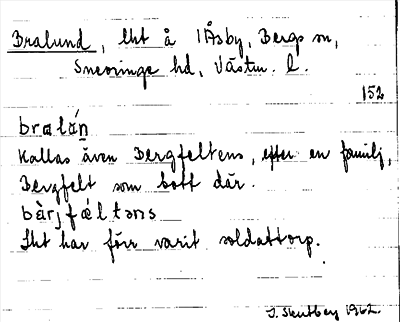 Bralund, lht å 1 Åsby, Bergs sn,
Snevringe hd, Västm. l.
152
bralán
Kallas även Bergfeltens, efter en familj,
Bergfelt som bott där.
bàrjfæ̀ltəns
Lht har förr varit soldattorp.
1962